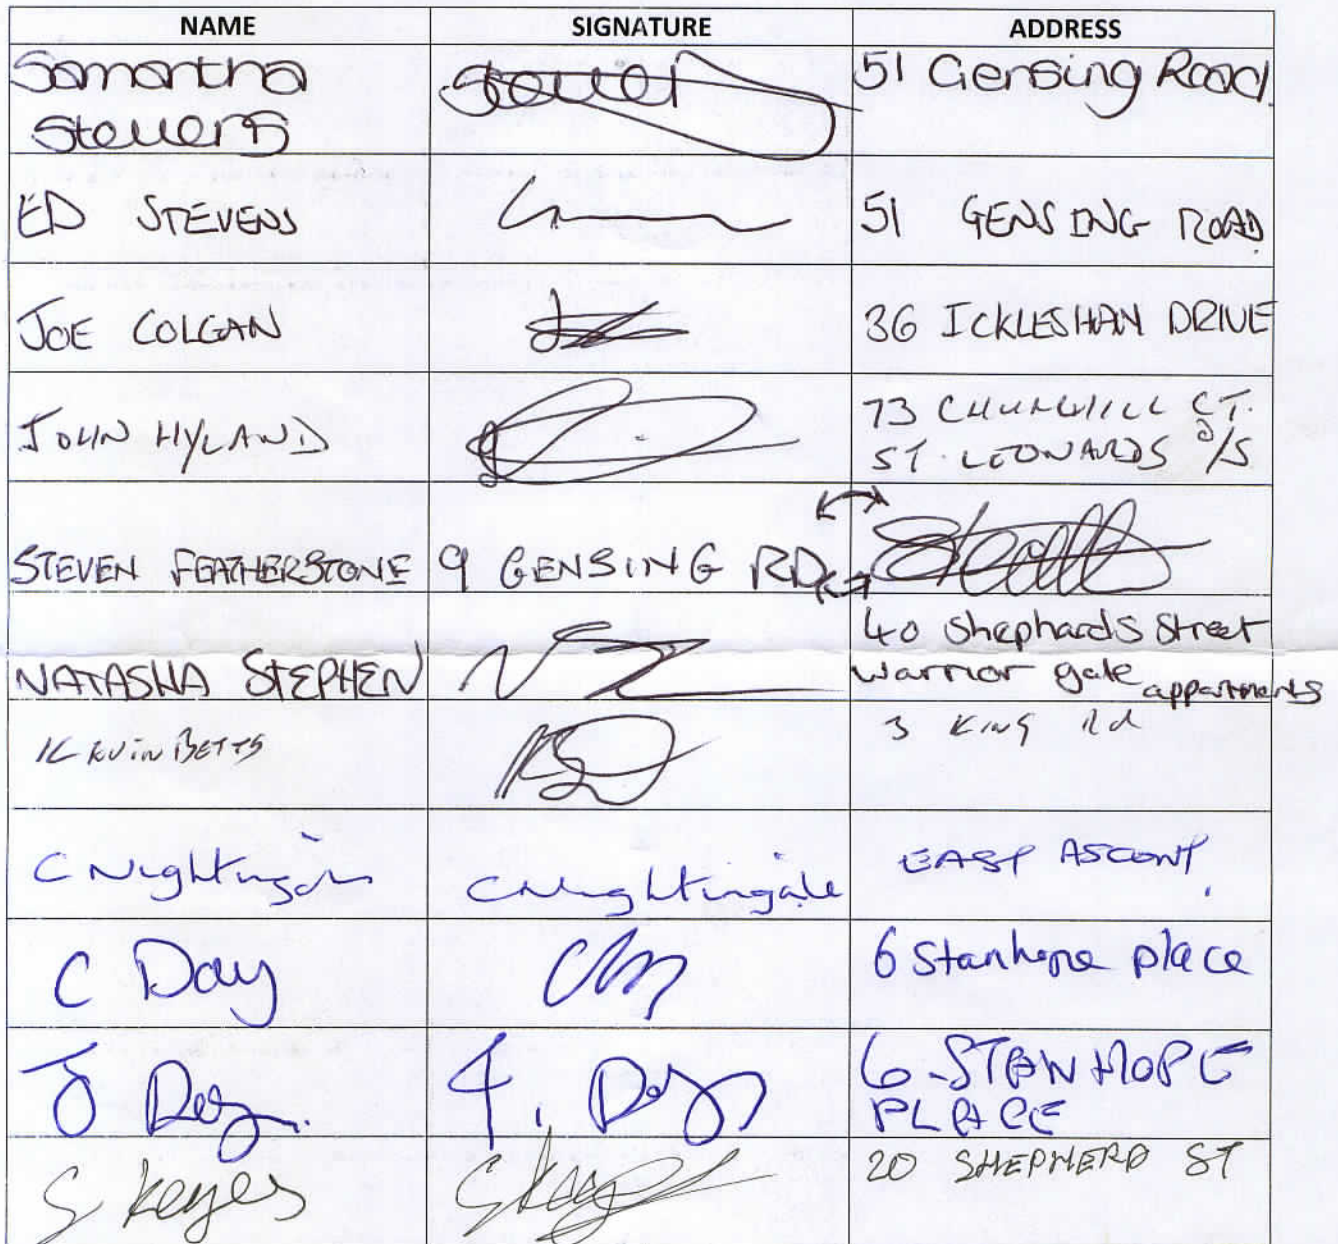 NAME SIGNATURE ADDRESS
Samantha 51 Gensing Road
Stevens
ED STEVENS 51 GENSING ROAD
JOE COLGAN 36 ICKLESHAM DRIVE
JOHN HYLAND 73 CHURCHILL CT.
ST. LEONARDS O/S
STEVEN FEATHERSTONE 9 GENSING RD
40 Shephards Street
NATASHA STEPHEN Warrior gate appartments
KEVIN BETTS 3 King Rd
C Nightingale C Nightingale EAST ASCENT
C Day 6 Stanhope place
J Day J. Day 6 STANHOPE
PLACE
S Keyes S Keyes 20 SHEPHERD ST